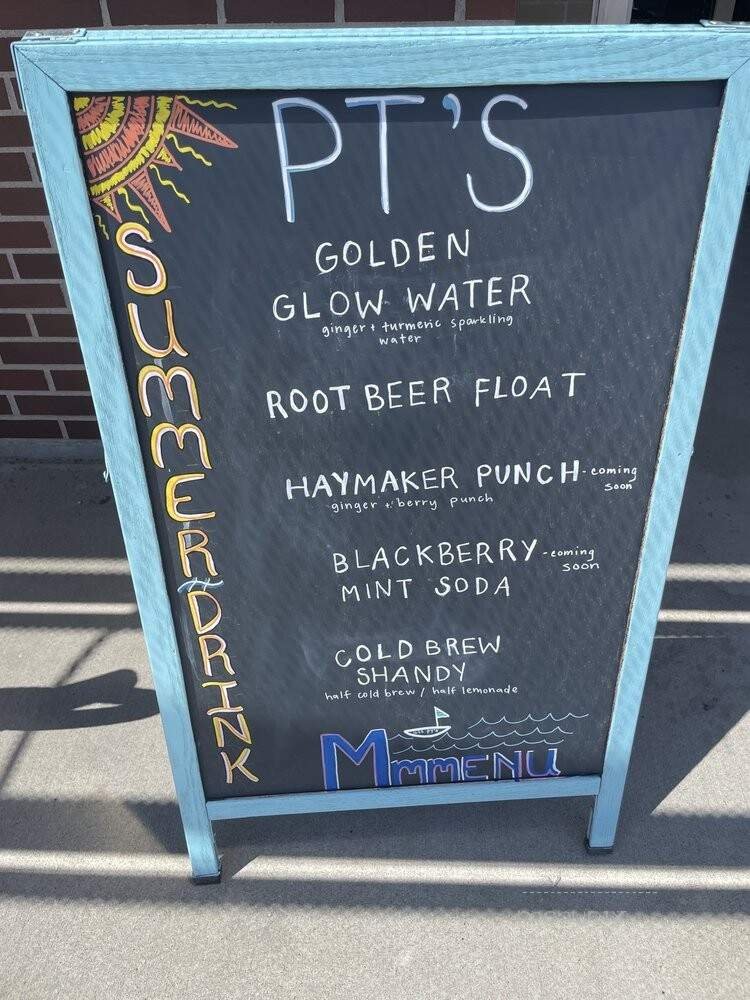 PT'S
SUMMER DRINK
GOLDEN
GLOW WATER
ginger + turmeric sparkling
water
ROOT BEER FLOAT
HAYMAKER PUNCH - coming
soon
ginger + berry punch
BLACKBERRY - coming
soon
MINT SODA
COLD BREW
SHANDY
half cold brew / half lemonade
MmmMENU